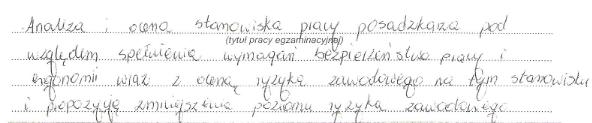 Analiza i ocena stanowiska pracy posadzkarza pod
(tytuł pracy egzaminacyjnej)
względem spełnienia wymagań bezpieczeństwa pracy i
ergonomii wraz z oceną ryzyka zawodowego na tym stanowisku
i propozycją zmniejszenia poziomu ryzyka zawodowego